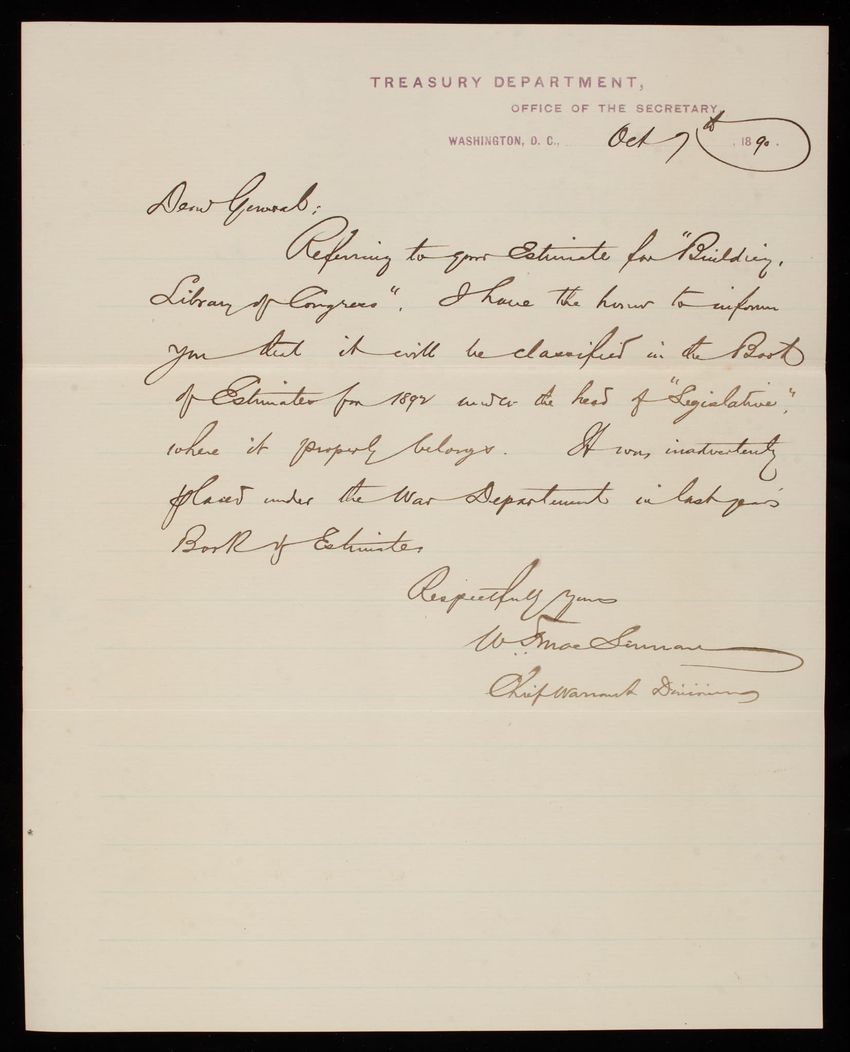 TREASURY DEPARTMENT,
OFFICE OF THE SECRETARY,
WASHINGTON, D. C., Oct 7th, 1890.
Dear General:
Referring to your Estimate for "Building,
Library of Congress". I have the honor to inform
you that it will be classified in the Book
of Estimates for 1892 under the head of "Legislative",
where it properly belongs. It was inadvertently
placed under the War Department in last year's
Book of Estimates
Respectfully yours
W. F. MacLennan
Chief Warrant Division